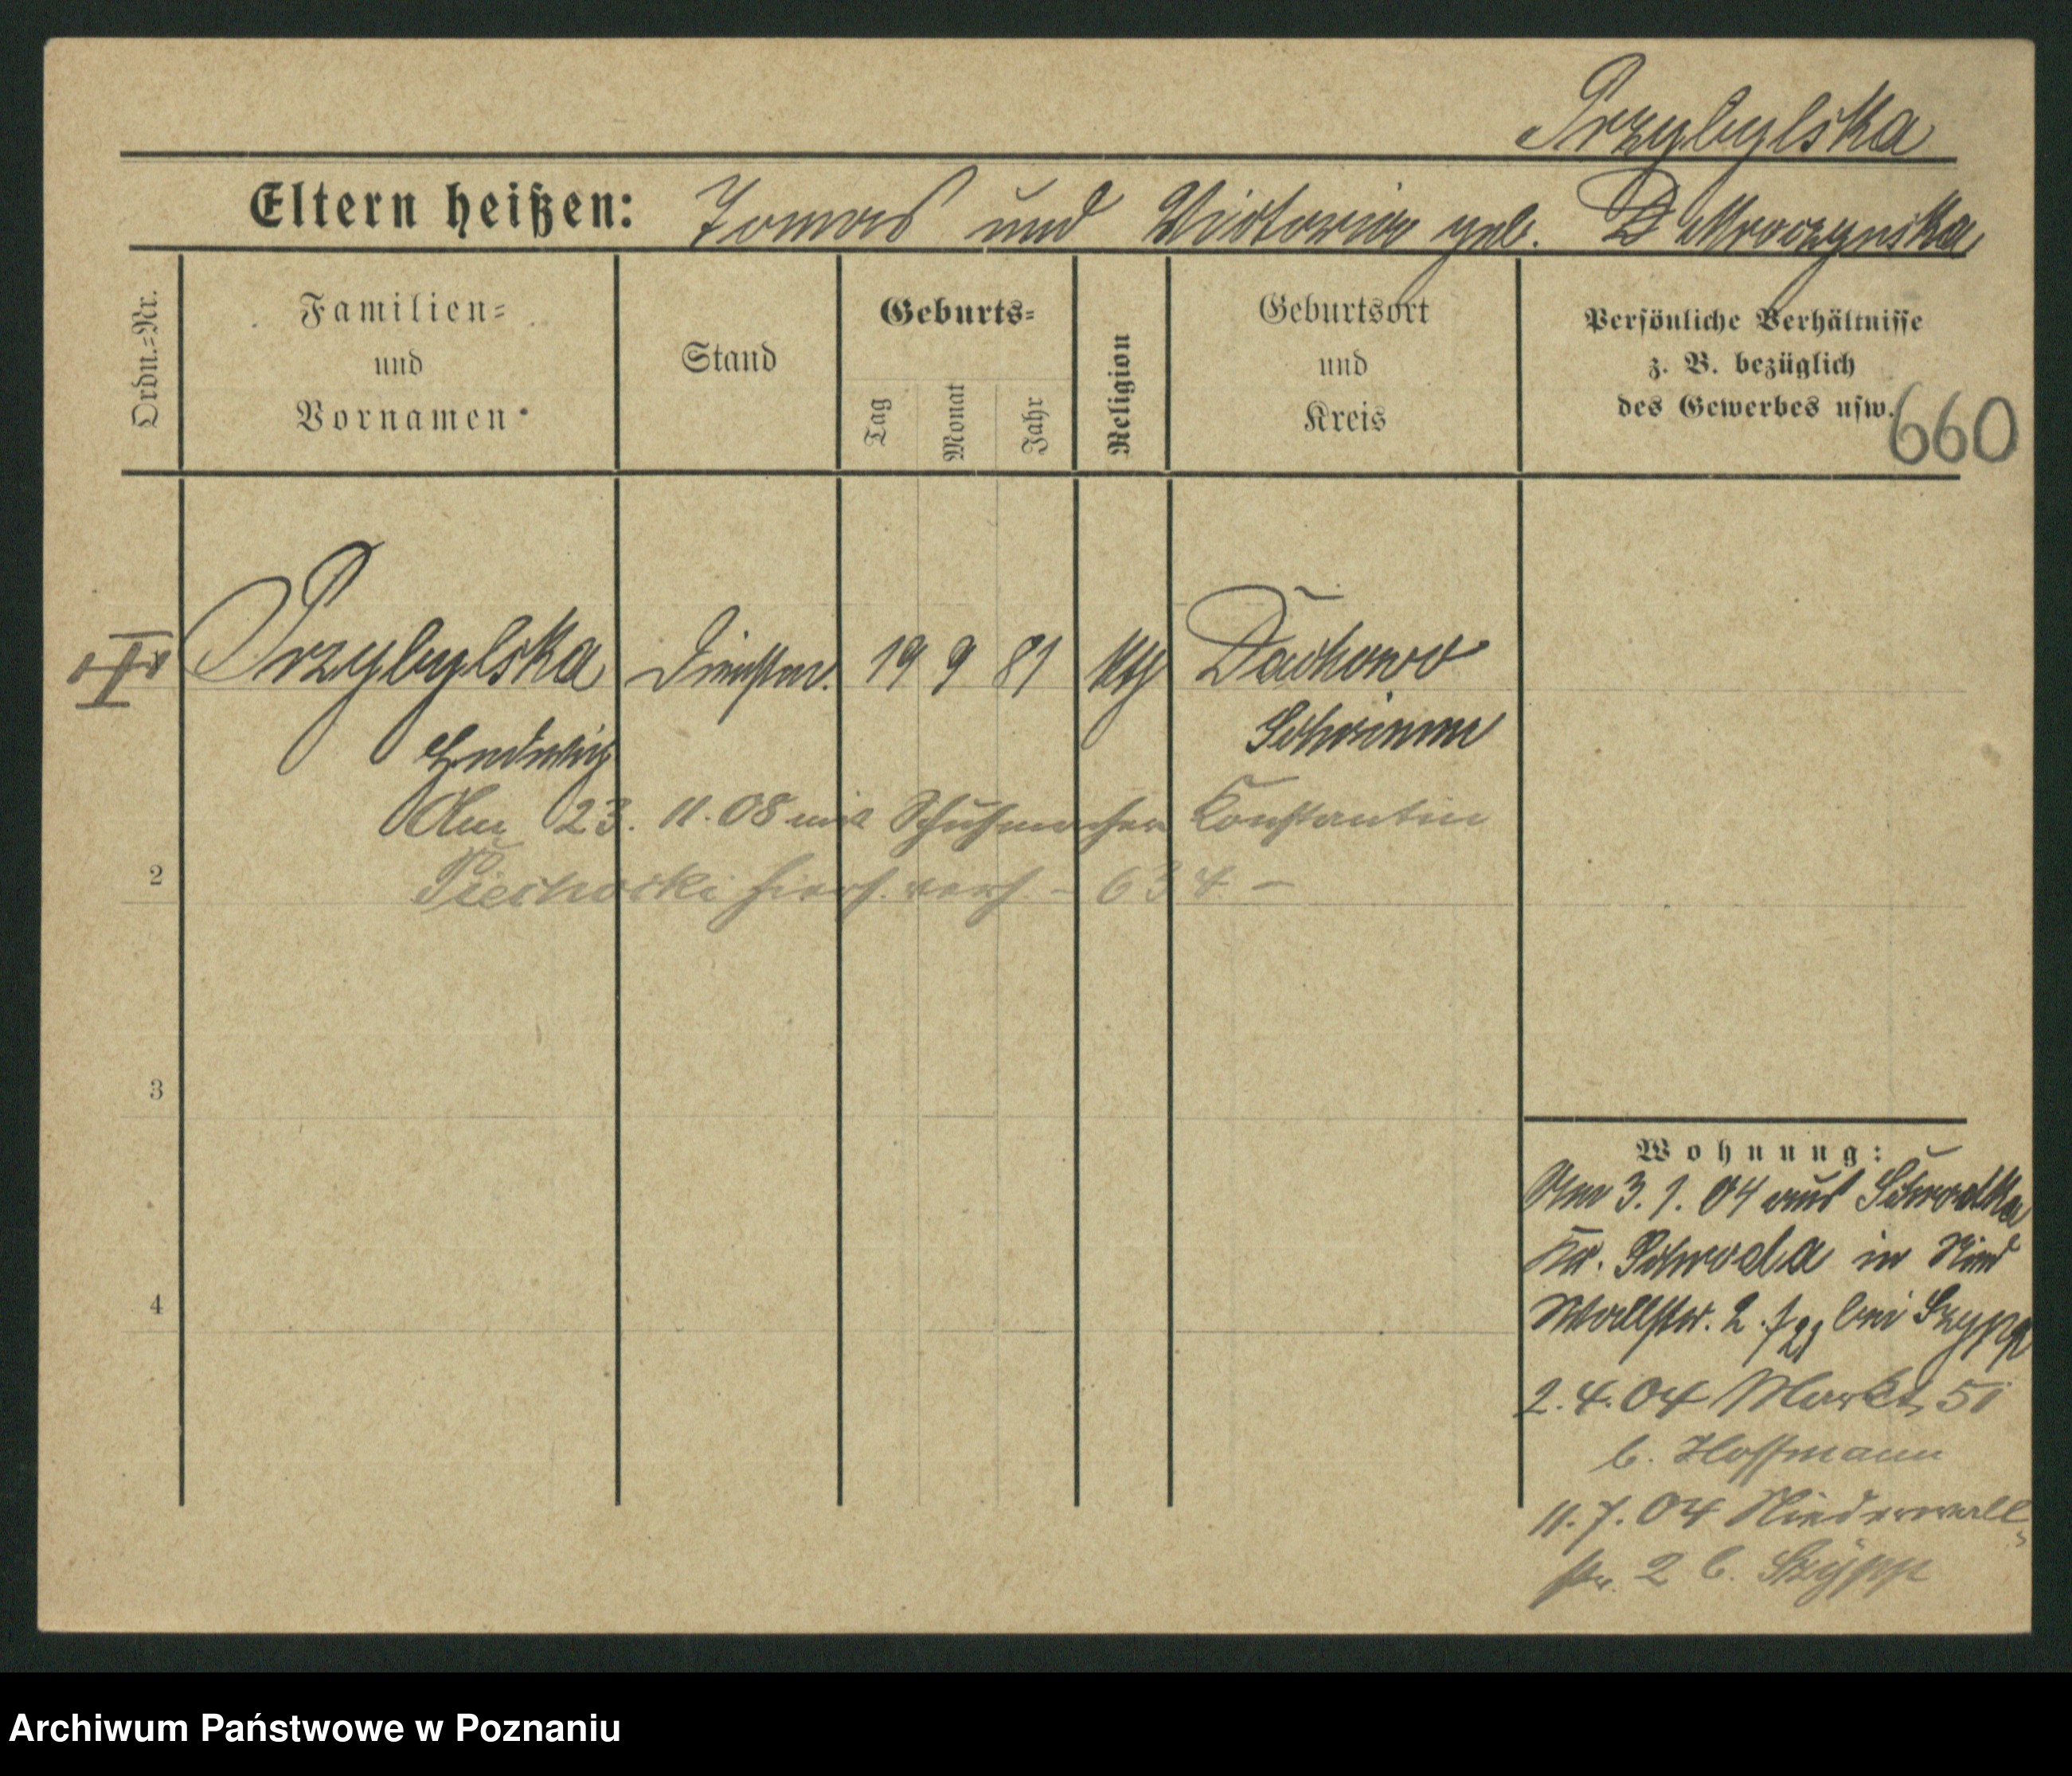 Przybylska
Eltern heißen: Tomas und Victoria geb. Mroczynska
Ordn.=Nr.
Familien=
und
Vornamen
Stand
Geburts=
Tag
Monat
Jahr
Religion
Geburtsort
und
Kreis
Persönliche Verhältnisse
z. B. bezüglich
des Gewerbes usw.
660
Przybylska 19 9 81 kth
Hedwig Schrimm
Am 23. 11. 08 mit Schuhmacher Konstantin
Piechocki hiers. verh. – 634 –
2
3
4
Wohnung:
Am 3. 1. 04 aus
Kr. Schroda in Nied
Wallstr. 2. bei Szypp
2. 4. 04 Markt 51
b. Hoffmann
11. 7. 04 Niederwall=
str. 2 b. Szypp
Archiwum Państwowe w Poznaniu